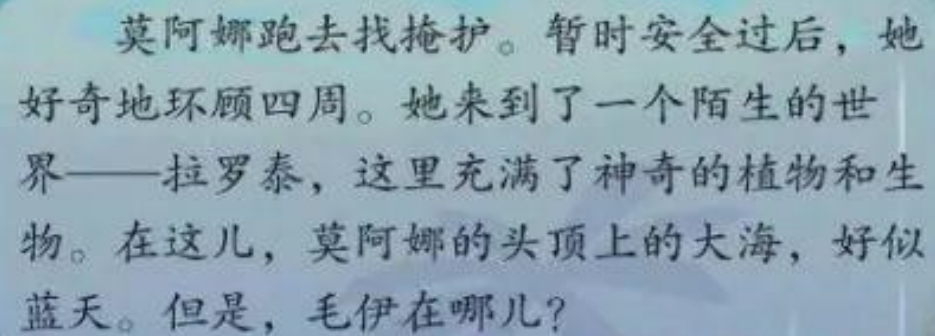 莫阿娜跑去找掩护。暂时安全过后，她
好奇地环顾四周。她来到了一个陌生的世
界——拉罗泰，这里充满了神奇的植物和生
物。在这儿，莫阿娜的头顶上的大海，好似
蓝天。但是，毛伊在哪儿？